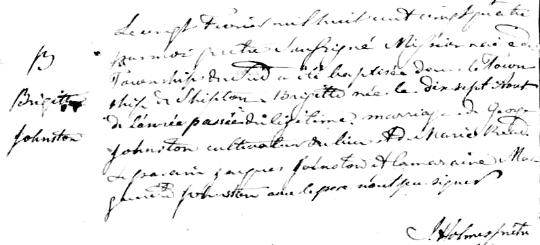 B
Brigitte
Johnston
Le vingt février mil huit cent vingt quatre
par moi prêtre soussigné Missionnaire des
Townships du Sud a été baptisée dans le Town
ship de Shipton Brigitte née le dix sept Aout
de l'année passée du légitime mariage de George
Johnston cultivateur du lieu & de Marie
Le parain Jacques Johnston & la maraine Mar
guerite Johnston ainsi que le père n'ont pu signer
J Holmes ptre